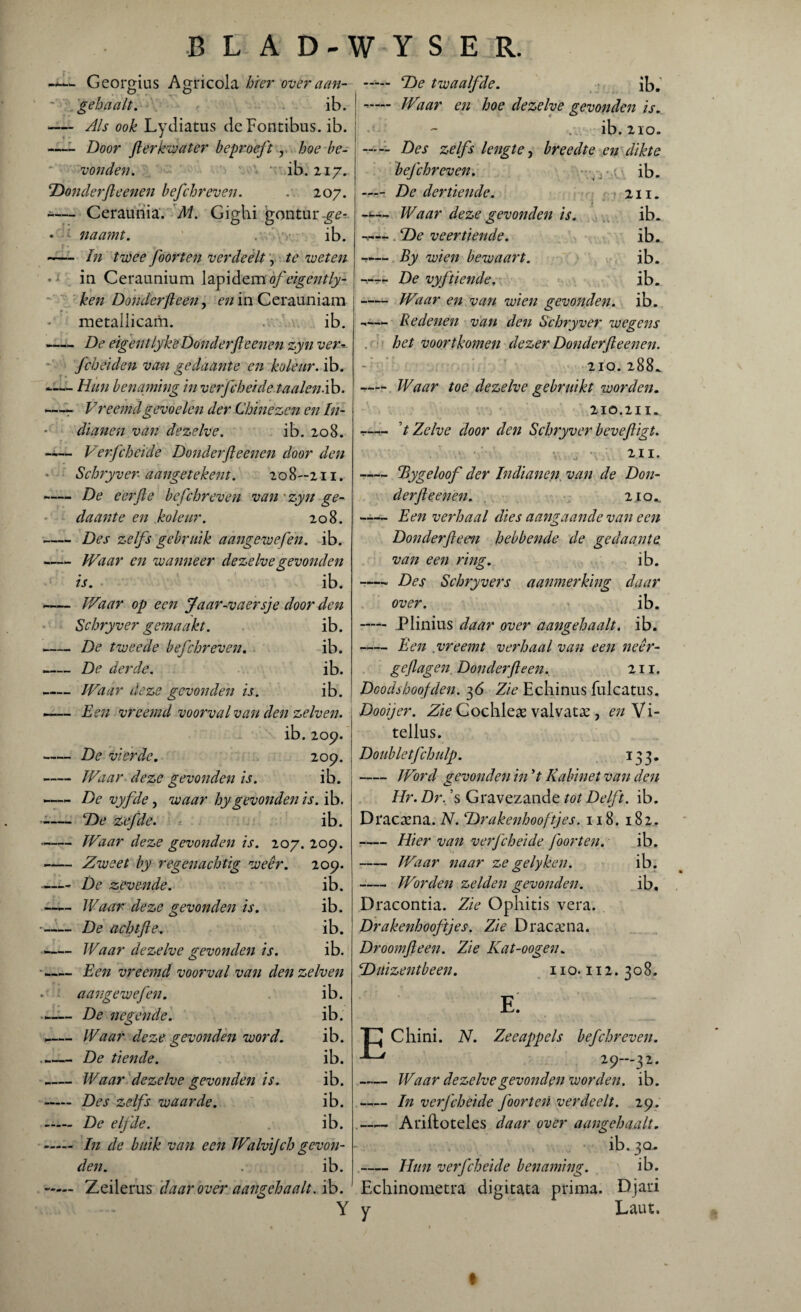 BLAD-WYSER.
—— Georgius Agricola hier over aan-
gehaalt. ib.
—— Als ook Lydiatus de Fontibus. ib.
—— Door sterkwater beproeft, hoe be-
vonden. ib. 217.
Dondersteenen beschreven. 207.
—— Ceraunia. M. Gighi gontur ge-
naamt. ib.
—— In twee soorten verdeelt, te weten
in Ceraunium lapidem of eigently-
ken Dondersteen, en in Cerauniam
metallicam. ib.
—— De eigentlyke Dondersteenen zyn ver-
scheiden van gedaante en koleur. ib.
—— Hun benaming in verscheide taalen ib.
—— Vreemd gevoelen der Chinezen en In-
dianen van dezelve. ib. 208.
—— Verscheide Dondersteenen door den
Schryver aangetekent. 208--211.
—— De eerste beschreven van zyn ge-
daante en koleur. 208.
—— Des zelfs gebruik aangewesen. ib.
—— Waar en wanneer dezelve gevonden
is. ib.
—— Waar op een Jaar-vaersje door den
Schryver gemaakt. ib.
—— De tweede beschreven. ib.
—— De derde. ib.
—— Waar deze gevonden is. ib.
—— Een vreemd voorval van den zelven.
ib. 209.
—— De vierde. 209.
—— Waar deze gevonden is. ib.
—— De vyfde, waar hy gevonden is. ib.
—— De zesde. ib.
—— Waar deze gevonden is. 207. 209.
—— Zweet by regenachtig weêr. 209.
—— De zevende. ib.
—— Waar deze gevonden is. ib.
—— De achtste. ib.
—— Waar dezelve gevonden is. ib.
—— Een vreemd voorval van den zelven
aangewesen. ib.
—— De negende. ib.
—— Waar deze gevonden word. ib.
—— De tiende. ib.
—— Waar dezelve gevonden is. ib.
—— Des zelfs waarde. ib.
—— De elfde. ib.
—— In de buik van een Walvisch gevon-
den. ib.
—— Zeilerus daar over aangehaalt. ib.
Y
—— De twaalfde. ib.
—— Waar en hoe dezelve gevonden is.
ib. 210.
—— Des zelfs lengte, breedte en dikte
beschreven. ib.
—— De dertiende. 211.
—— Waar deze gevonden is. ib.
—— De veertiende. ib.
—— By wien bewaart. ib.
—— De vyftiende. ib.
—— Waar en van wien gevonden. ib.
—— Redenen van den Schryver wegens
het voortkomen dezer Dondersteenen.
210. 288.
—— Waar toe dezelve gebruikt worden.
210. 211.
—— 't Zelve door den Schryver bevestigt.
211.
—— Bygeloof der Indianen van de Don-
dersteenen. 210.
—— Een verhaal dies aangaande van een
Dondersteen hebbende de gedaante
van een ring. ib.
—— Des Schryvers aanmerking daar
over. ib.
—— Plinius daar over aangehaalt. ib.
—— Een vreemt verhaal van een neêr-
geslagen Dondersteen. 211.
Doodshoofden. 36 Zie Echinus sulcatus.
Dooijer. Zie Cochleæ valvatæ, en Vi-
tellus.
Doubletschulp. 133.
—— Word gevonden in 't Kabinet van den
Hr. Dr. 's Gravezande tot Delft. ib.
Dracæna. N. Drakenhooftjes. 118. 182.
—— Hier van verscheide soorten. ib.
—— Waar naar ze gelyken. ib.
—— Worden zelden gevonden. ib.
Dracontia. Zie Ophitis vera.
Drakenhooftjes. Zie Dracæna.
Droomsteen. Zie Kat-oogen.
Duizentbeen. 110. 112. 308.
E.
EChini. N. Zeeappels beschreven.
29--32.
—— Waar dezelve gevonden worden. ib.
—— In verscheide soorten verdeelt. 29.
—— Aristoteles daar over aangehaalt.
ib. 30.
—— Hun verscheide benaming. ib.
Echinometra digitata prima. Djari
y Laut.